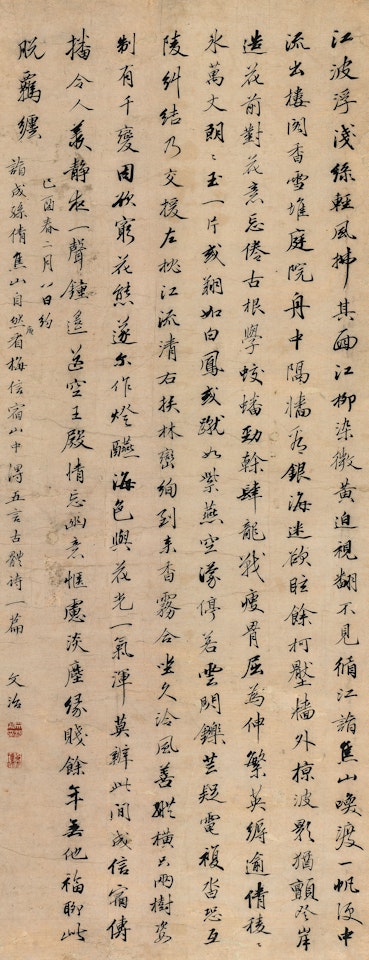 江波浮淺綠輕風拂其面江柳染微黃迫視翻不見循江詣焦山喚渡一帆便中
流出樓閣香雪堆庭院舟中隔牆看銀海迷欲眩餘柯壓牆外掠波影猶顫登岸
造花前對花意忘倦古根學蛟蟠勁幹肆龍戰瘦骨屈為伸繁英縟逾倩稜〻
氷萬丈朗〻玉一片或翔如白鳳或蹴如紫燕空濛停若雲閃鑠芒疑電複沓恐互
陵糾結乃交援左挹江流清右扶林巒絢到來香霧合坐久泠風善縱橫只兩樹姿
制有千變因欲窮花態遂尔作燈醼海色與花光一氣渾莫辨此間成信宿傳
播令人羨靜夜一聲鐘遙落空王殿情忘幽意愜慮淡塵緣賤餘年無他福聊此
脫羈纏
己酉春二月八日約
詣成孫倩焦山自然庵看梅信宿山中得五言古體詩一篇 文治